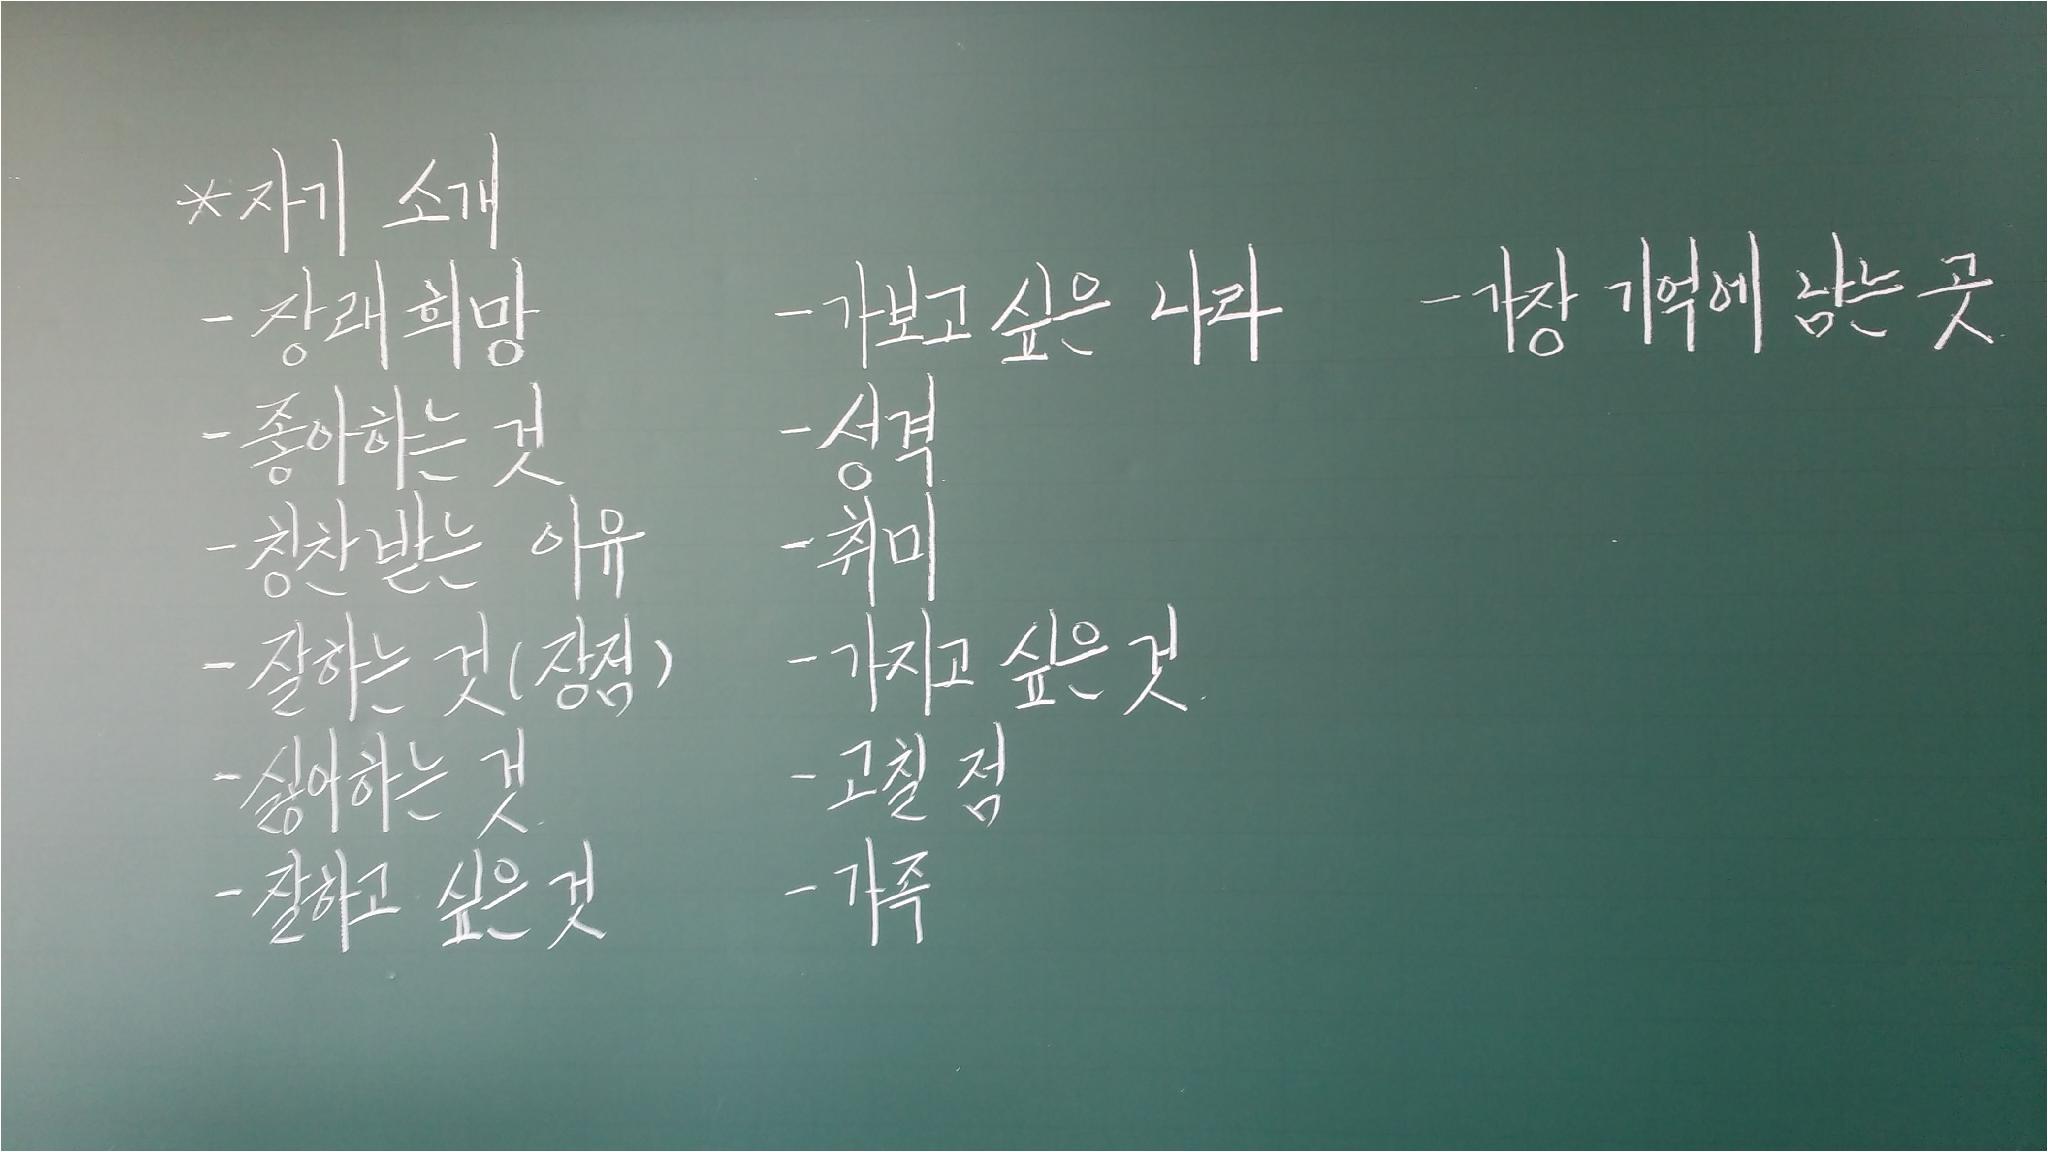 *자기 소개
- 장래희망
- 좋아하는 것
- 칭찬받는 이유
- 잘하는 것(장점)
- 싫어하는 것
- 잘하고 싶은것
- 가보고 싶은 나라
- 성격
- 취미
- 가지고 싶은 것
- 고칠 점
- 가족
- 가장 기억에 남는 곳